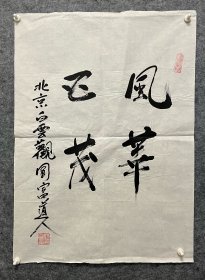 風華
正茂
北京白雲觀周富道人